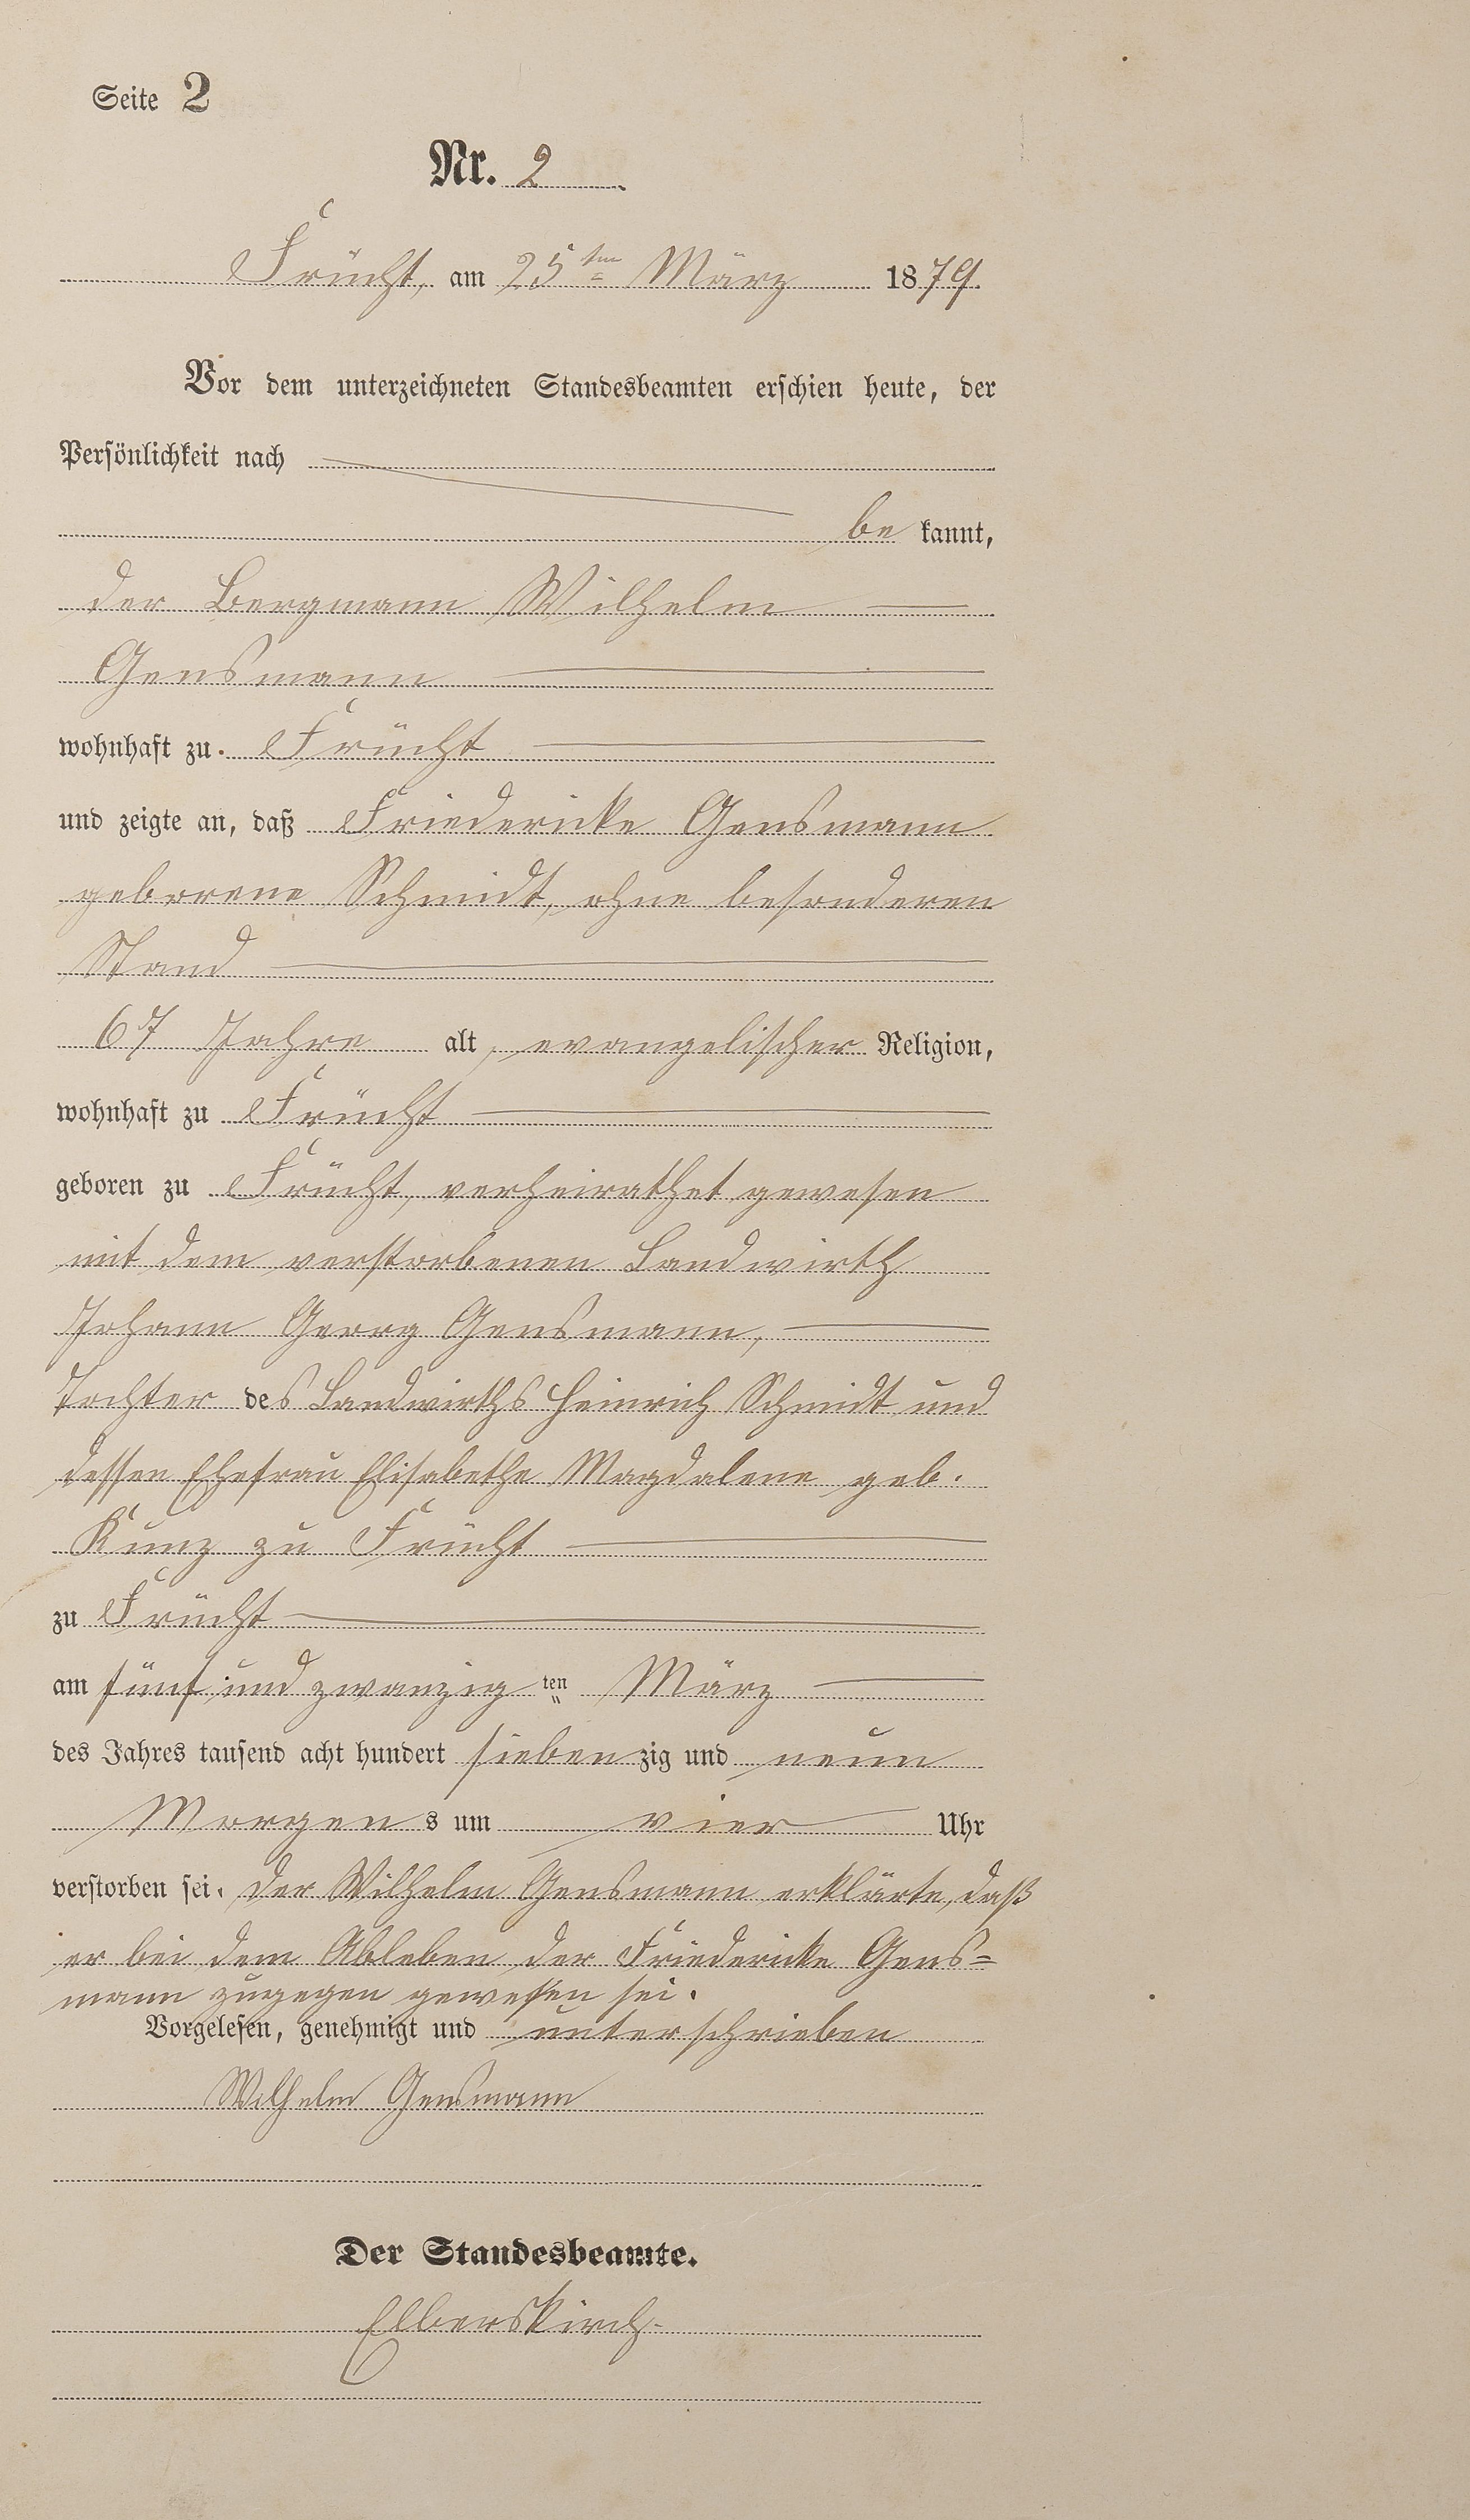 Seite 2
Nr. 2
Frücht, am 25ten März 1879.
Vor dem unterzeichneten Standesbeamten erschien heute, der
Persönlichkeit nach
be kannt,
der Bergmann Wilhelm
Gensmann
wohnhaft zu Frücht
und zeigte an, daß Friedericke Gensmann
geborene Schmidt, ohne besonderen
Stand
67 Jahre alt, evangelischer Religion,
wohnhaft zu Frücht
geboren zu Frücht, verheirathet gewesen
mit dem verstorbenen Landwirth
Johann Georg Gensmann,
Tochter des Landwirths Heinrich Schmidt und
dessen Ehefrau Elisabethe Magdalene geb.
Kunz zu Frücht
zu Frücht
am fünf und zwanzig ten März
des Jahres tausend acht hundert siebenzig und neun
Morgens um vier Uhr
verstorben sei. Der Wilhelm Gensmann erklärte, daß
er bei dem Ableben der Friedericke Gens=
mann zugegen gewesen sei.
Vorgelesen, genehmigt und unterschrieben
Wilhelm Gensmann
Der Standesbeamte.
Elberskirch